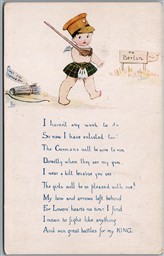 To
Berlin
I haven't any work to do
So now I have enlisted too!
The Germans will be sure to run
Directly when they see my gun.
I wear a kilt because you see
The girls will be so pleased with me!
My bow and arrows left behind
For Lovers' hearts no time I find
I mean to fight like anything
And win great battles for my KING.